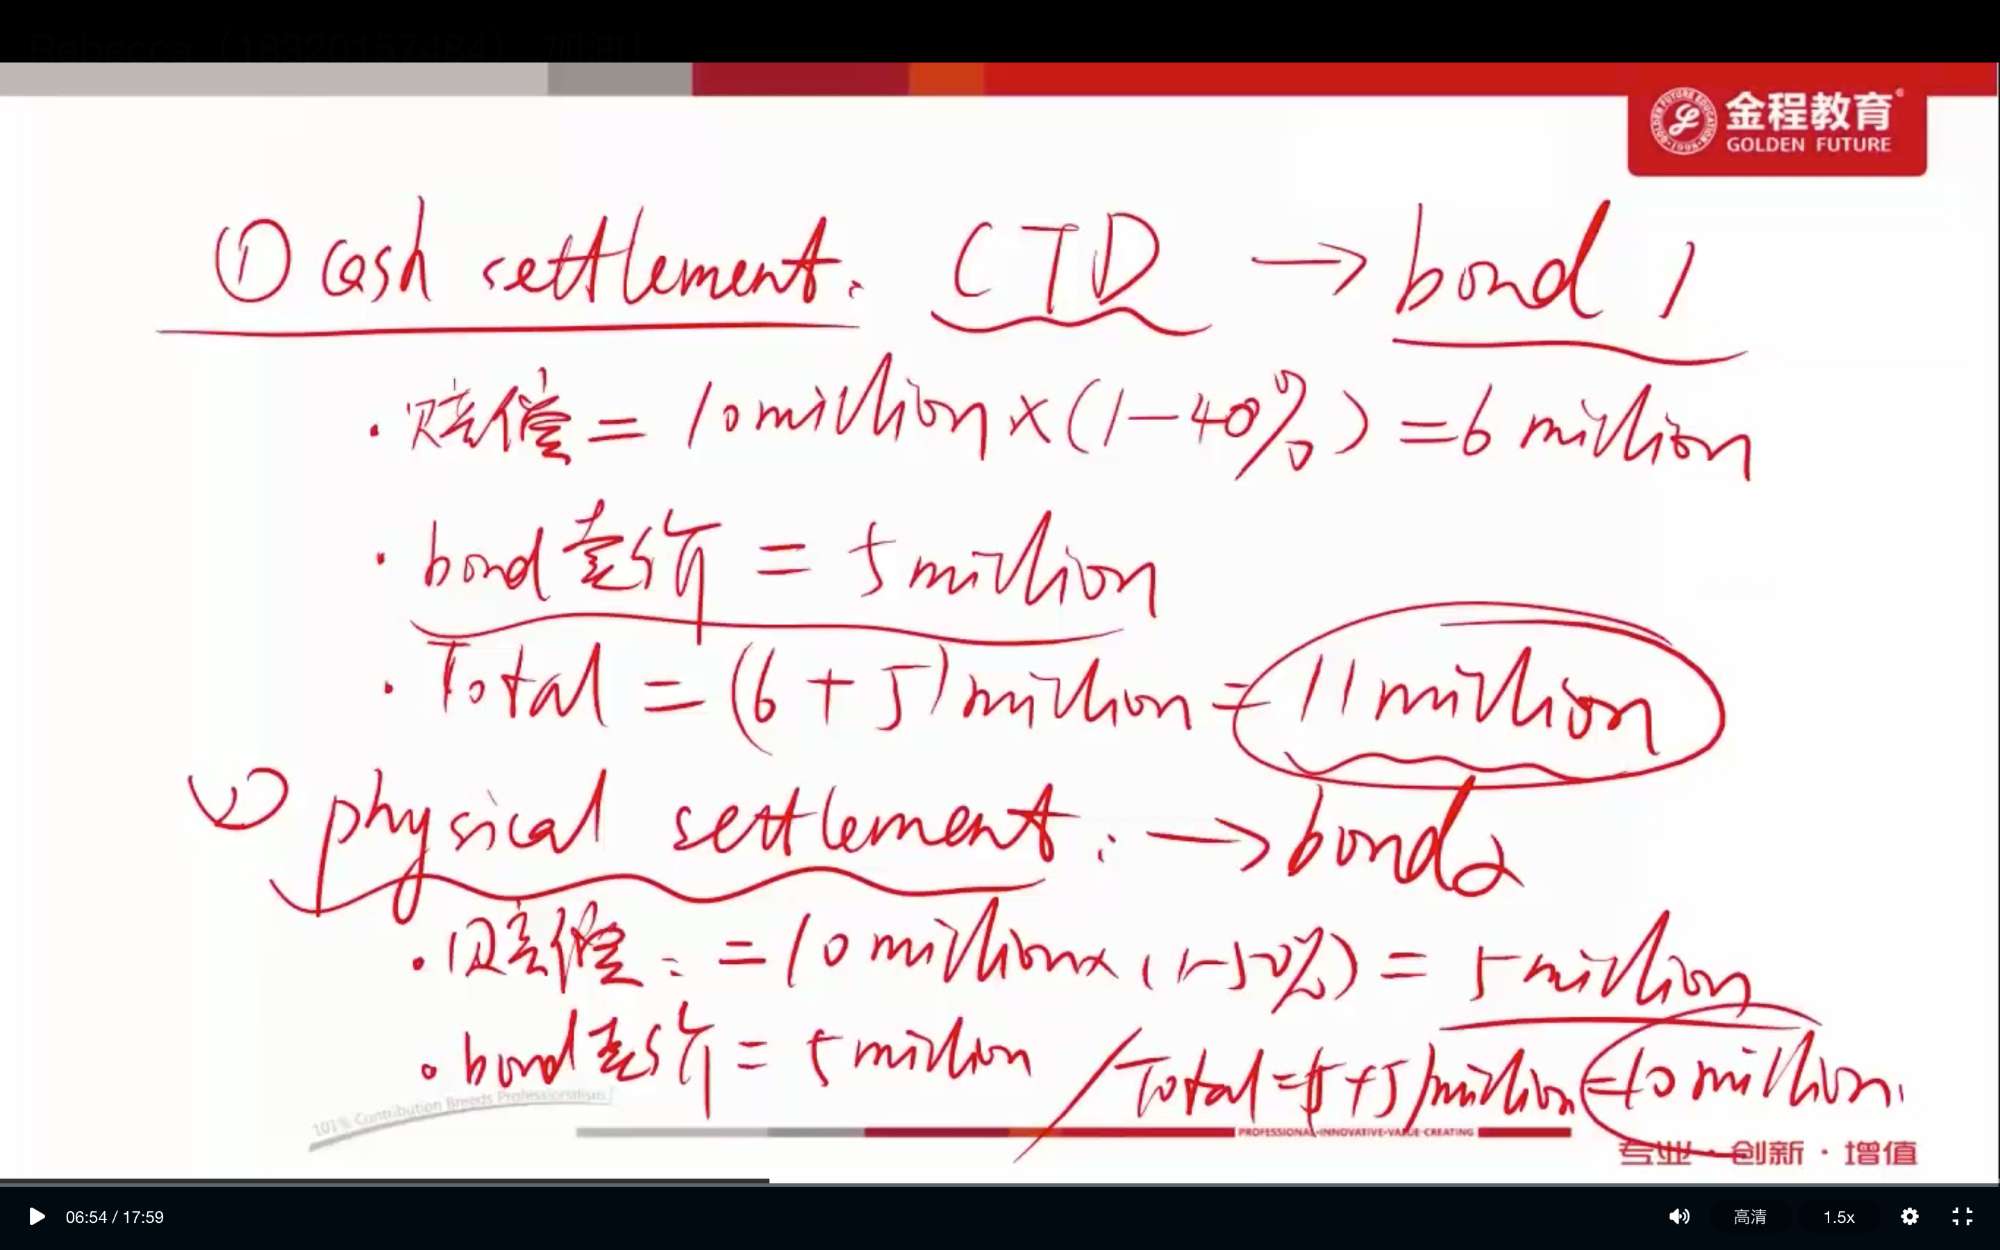 金程教育
GOLDEN FUTURE
① cash settlement: CTD → bond 1
· 赔偿 = 10 million × (1-40%) = 6 million
· bond 卖价 = 5 million
· Total = (6+5) million = 11 million
② physical settlement: → bond 2
· 赔偿: = 10 million × (1-50%) = 5 million
· bond 卖价 = 5 million / Total = (5+5) million = 10 million.
101% Contribution Breeds Professionalism
PROFESSIONAL·INNOVATIVE·VALUE-CREATING
专业·创新·增值
06:54 / 17:59
高清
1.5x